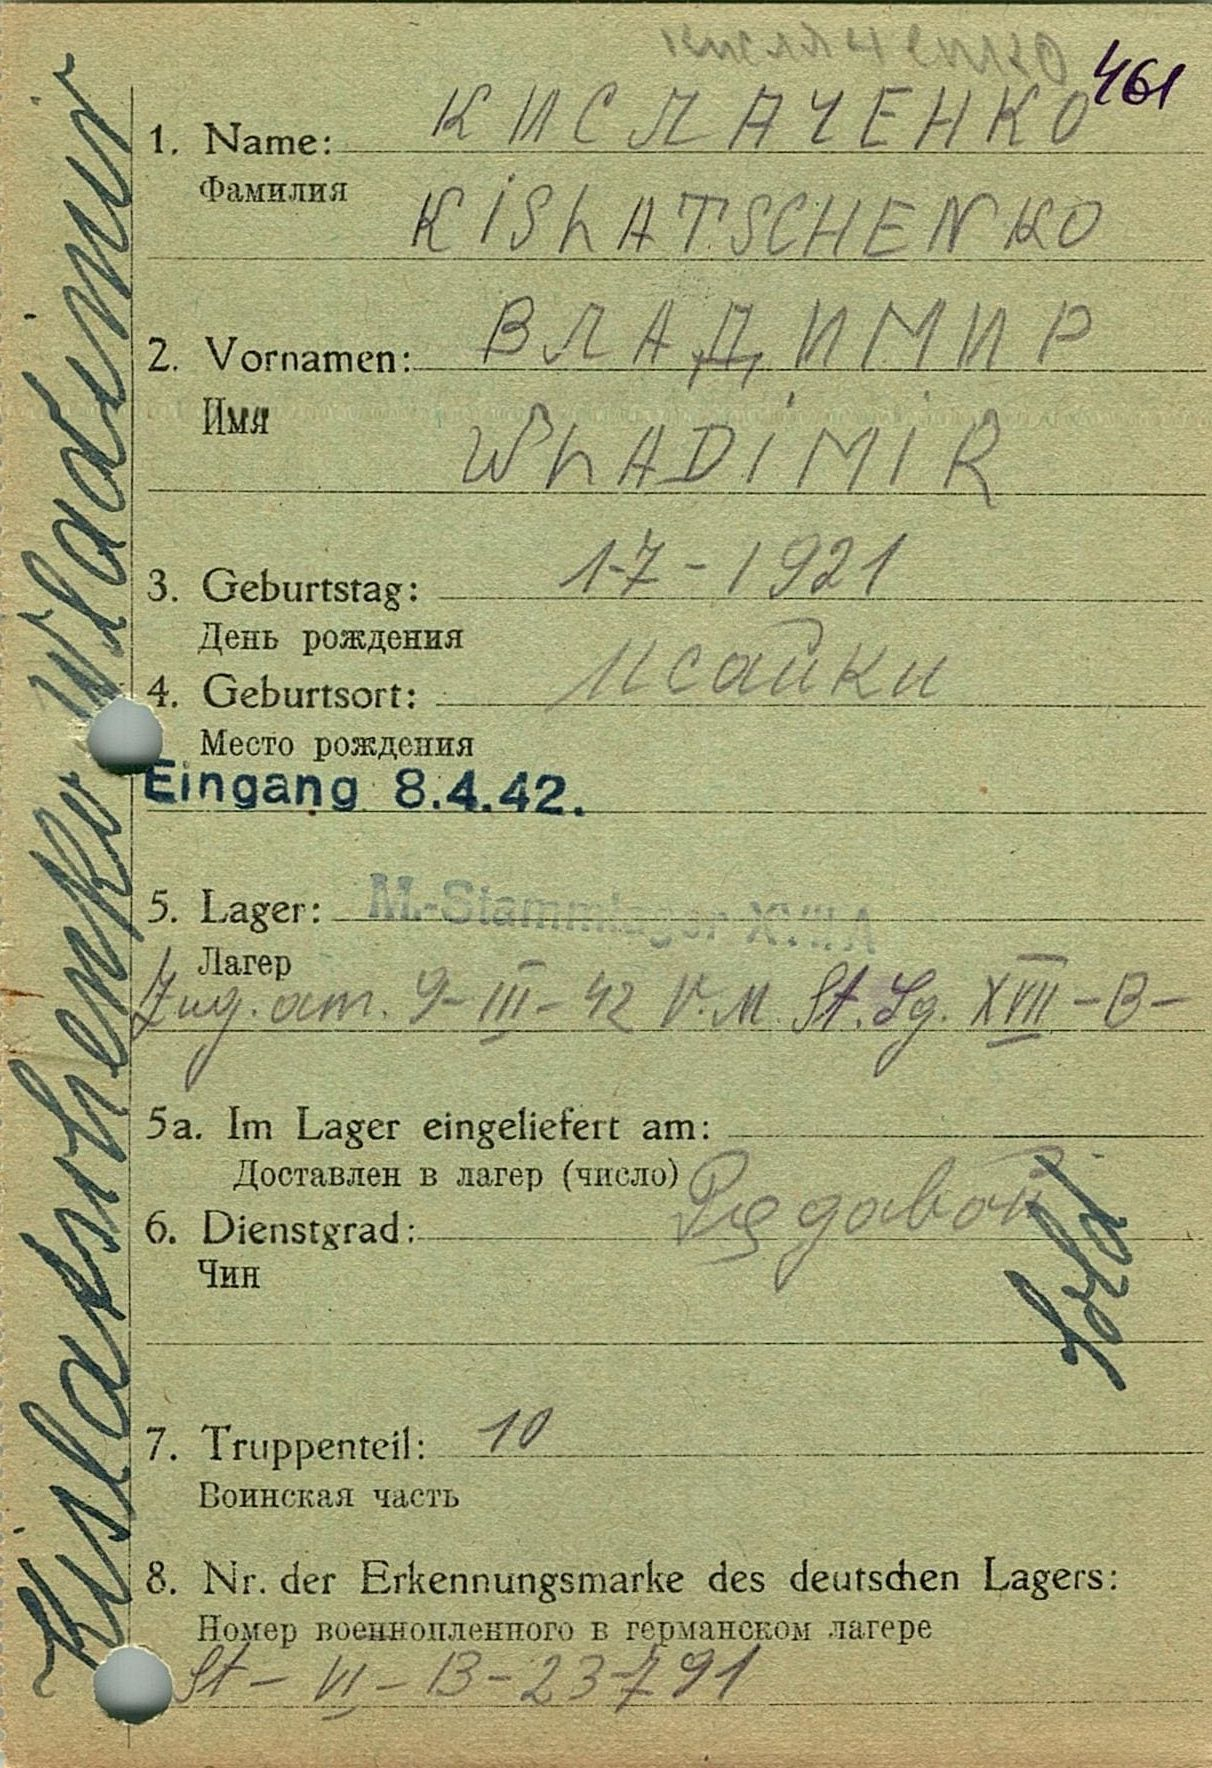 461
1. Name: КИСЛАЧЕНКО
Фамилия
KISLATSCHENKO
2. Vornamen: ВЛАДИМИР
Имя
WLADIMIR
3. Geburtstag: 1-7-1921
День рождения
4. Geburtsort: Исайки
Место рождения
Eingang 8.4.42.
5. Lager: M.-Stammlager XVIII A
Лагер
Zug. am. 9-III-42 V. M. St. Lg. XVII-B-
5a. Im Lager eingeliefert am:
Доставлен в лагер (число)
6. Dienstgrad: Рядовой
Чин
Sold
7. Truppenteil: 10
Воинская часть
8. Nr. der Erkennungsmarke des deutschen Lagers:
Номер военнопленного в германском лагере
St-VI-B-23791
Kislatschenko Wladimir